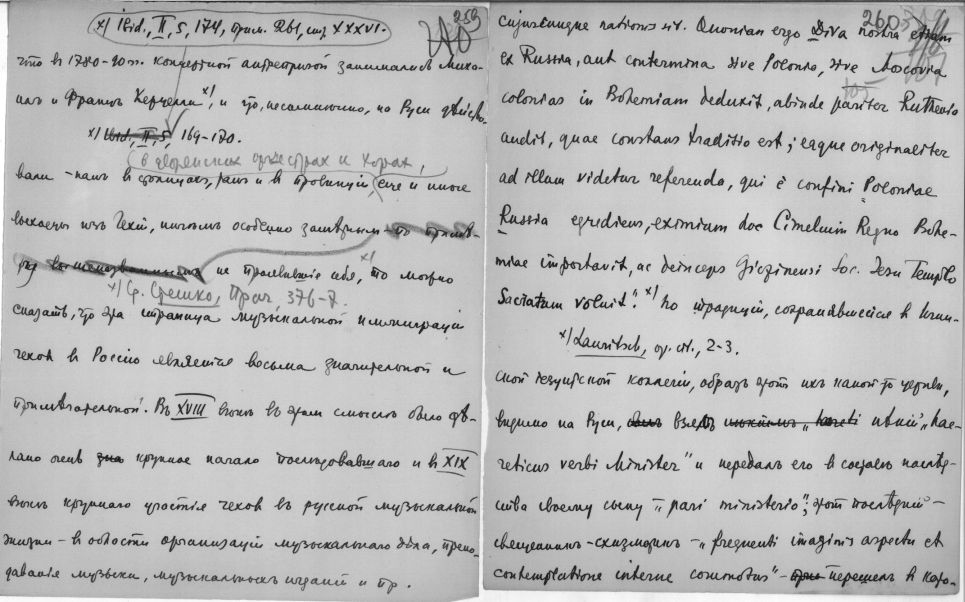 259
x) Ibid., II, 5, 174, прим. 261, стр. XXXVI.
что в 1780-90 гг. концертной антрепризой занимались Миха-
илъ и Францъ Керцелли x), и что, несомненно, на Руси действо-
x) Ibid., II, 5, 169-170.
в дворянских оркестрах и хорах,
вали - какъ в столицахъ, такъ и в провинціи, еще и иные
выходцы изъ Чехіи, ничѣмъ особенно замѣтнымъ
не проявившіе себя, x) то можно
x) Ср. Стешко, Прач, 376-7.
сказать, что эта страница музыкальной иммиграціи
чеховъ в Россію является весьма значительной и
примѣчательной. Въ XVIII вѣкѣ въ этом смыслѣ было сдѣ-
лано очень крупное начало послѣдовавшаго и в XIX
вѣкѣ крупнаго участія чехов въ русской музыкальной
жизни - в области организаціи музыкальнаго дѣла, препо-
даванія музыки, музыкальныхъ изданій и пр.
260
cujuscunque nationis sit. Quoniam ergo Diva nostra etiam
ex Russia, aut contermina sive Polonia, sive Moscovia
colonias in Bohemiam deduxit, abinde pariter Ruthenis
audit, quae constans traditio est; eaque originaliter
ad illum videtur referenda, qui è confini Poloniae
Russia egrediens, eximium hoc Cimelium Regno Bohe-
miae importavit, ac deinceps Giczinensi Soc. Jesu Templo
Sacratum voluit". x) По традиціи, сохранявшейся в Ичин-
x) Lauritsch, op. cit., 2-3.
ской іезуитской коллегіи, образъ этотъ изъ какой то церкви,
видимо на Руси, взялъ нѣкій "hae-
reticus verbi Minister" и передалъ его в составѣ наслѣд-
ства своему сыну "pari ministerio"; этот послѣдній -
священникъ-схизматикъ - "frequenti imaginis aspectu et
contemplatione interne commotus" - перешелъ в като-